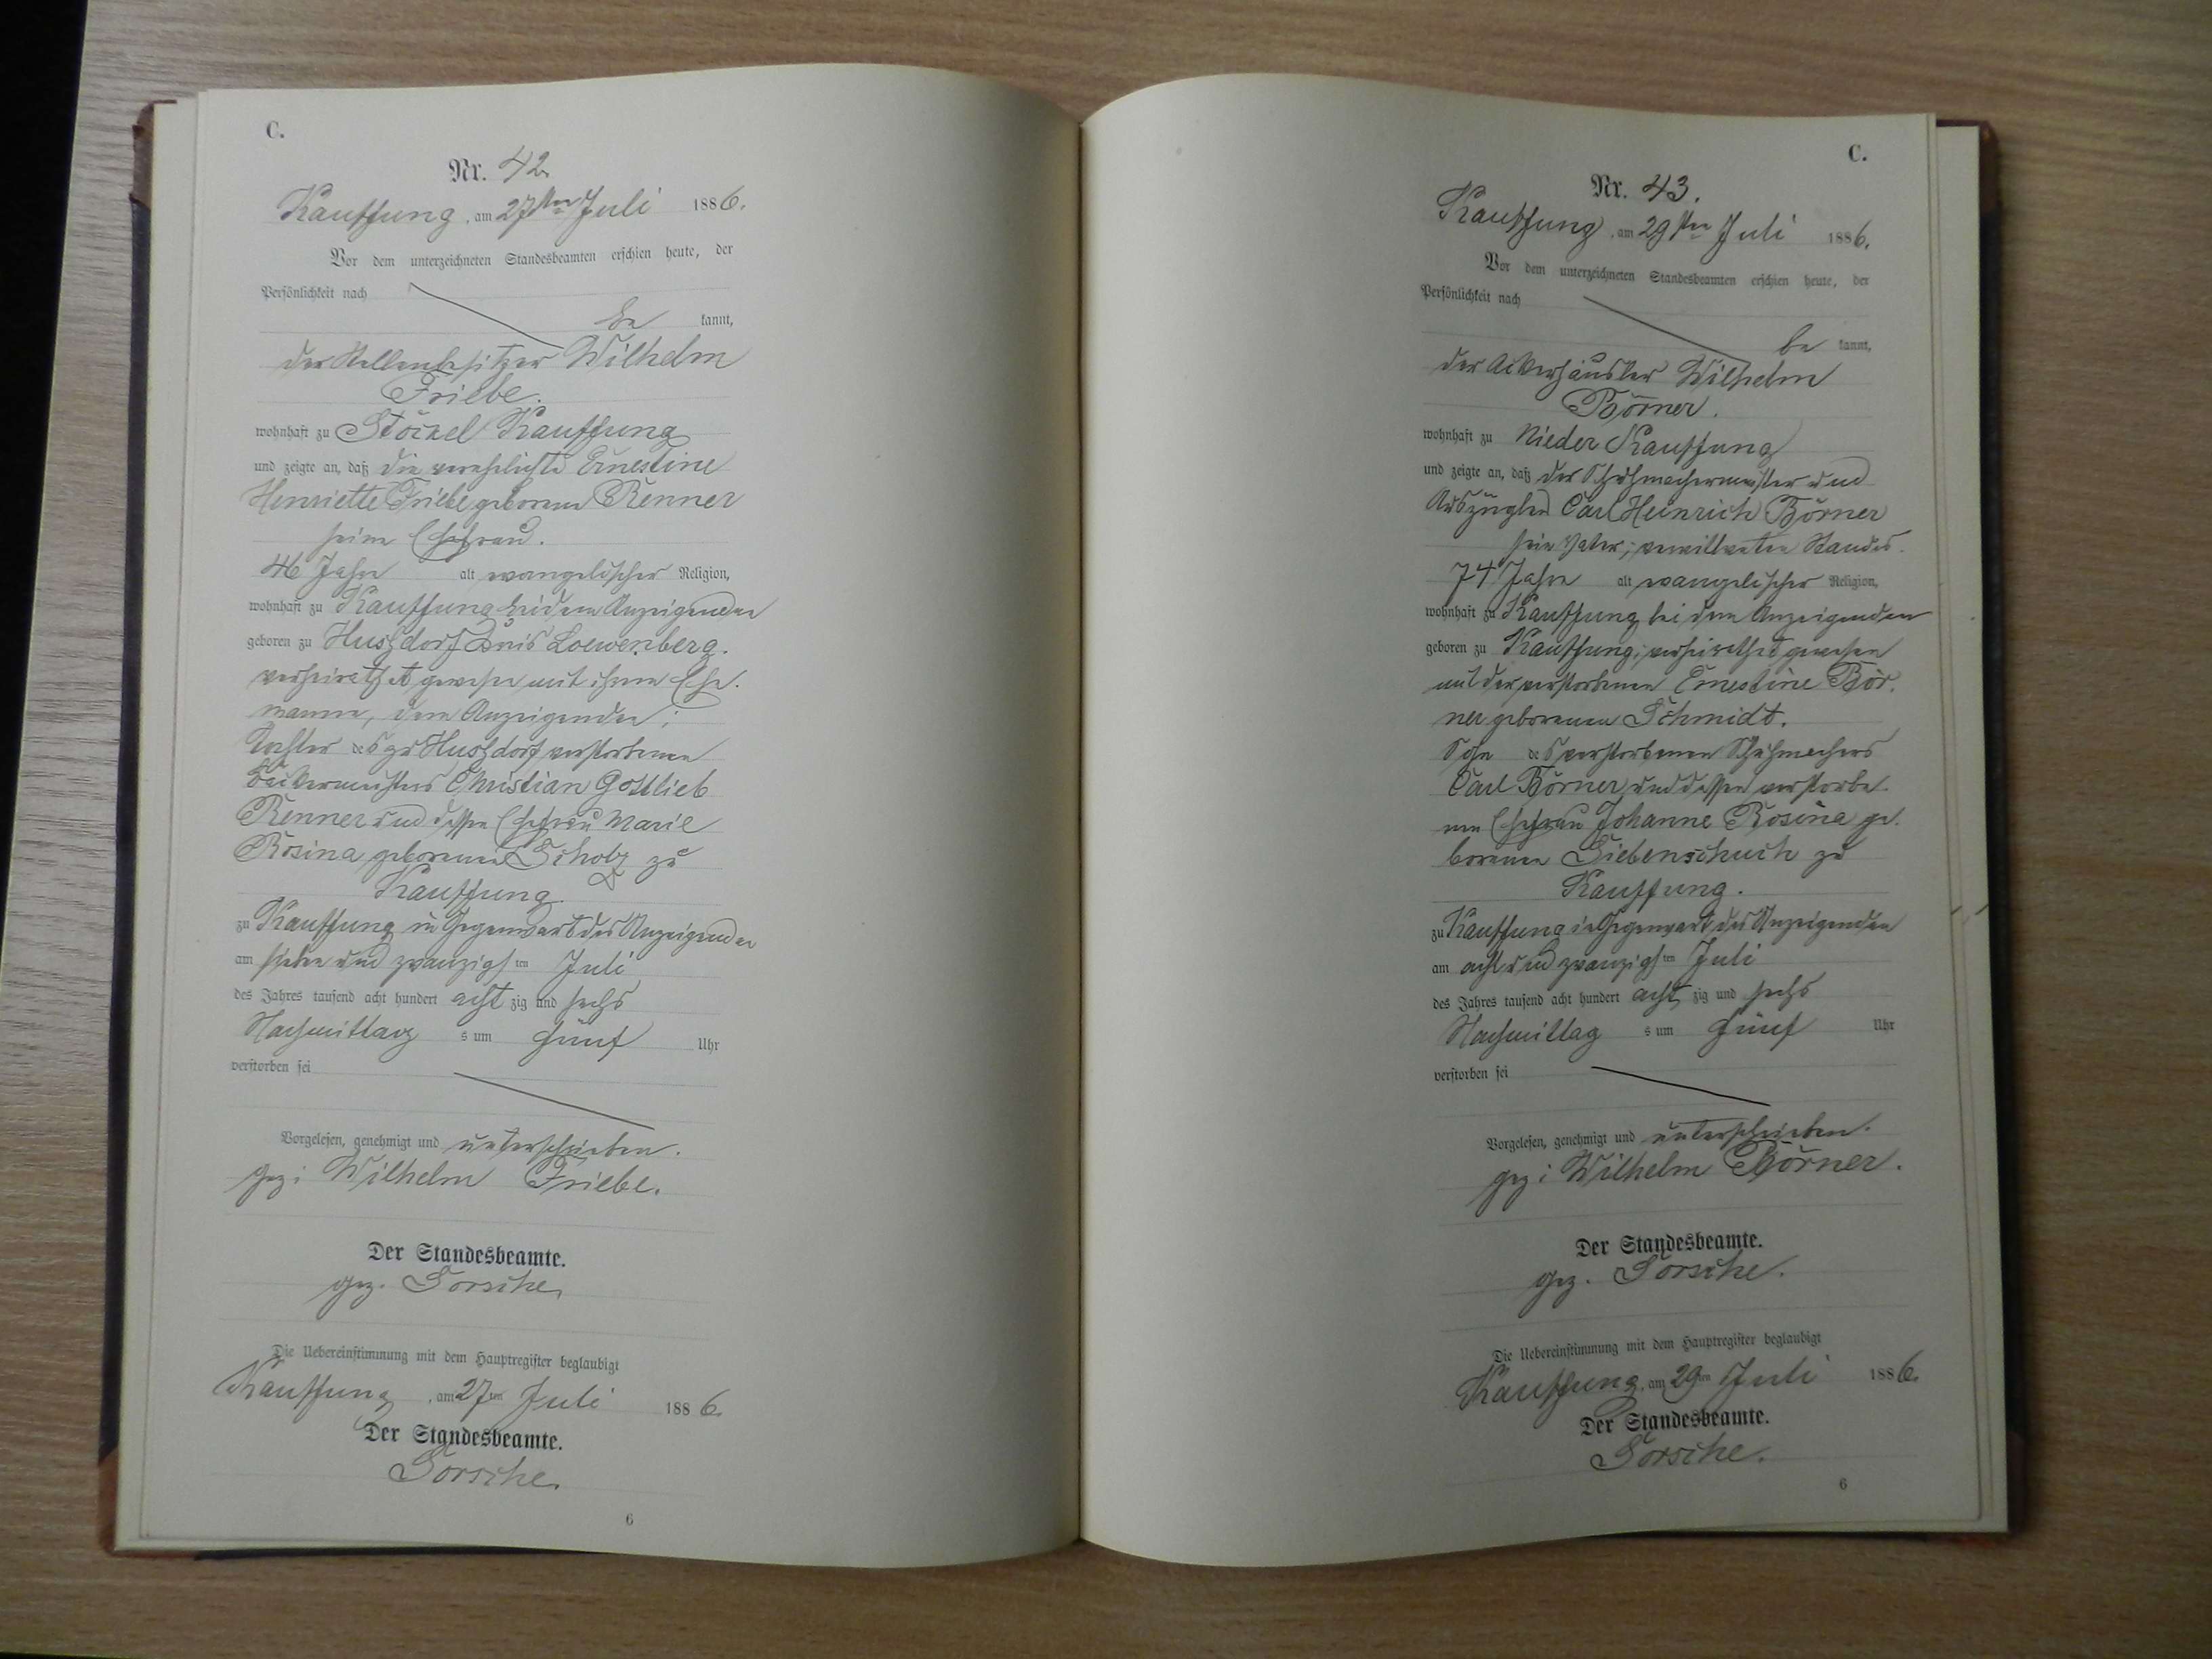 C.
Nr. 42.
Kauffung, am 27ten Juli 1886.
Vor dem unterzeichneten Standesbeamten erschien heute, der
Persönlichkeit nach
be kannt,
der Stellenbesitzer Wilhelm
Friebe.
wohnhaft zu Stöckel Kauffung
und zeigte an, daß die verehelichte Ernestine
Henriette Friebe geborene Renner
seine Ehefrau.
46 Jahre alt evangelischer Religion,
wohnhaft zu Kauffung bei dem Anzeigenden
geboren zu Hußdorf Kreis Loewenberg.
verheirathet gewesen mit ihrem Ehe-
manne, dem Anzeigenden;
Tochter des zu Hußdorf verstorbenen
Bäckermeisters Christian Gottlieb
Renner und dessen Ehefrau Marie
Rosina geborenen Scholz zu
Kauffung
zu Kauffung in Gegenwart des Anzeigenden
am sieben und zwanzigsten Juli
des Jahres tausend acht hundert acht zig und sechs
Nachmittag s um fünf Uhr
verstorben sei
Vorgelesen, genehmigt und unterschrieben.
gez: Wilhelm Friebe.
Der Standesbeamte.
gez. Sorsche.
Die Uebereinstimmung mit dem Hauptregister beglaubigt
Kauffung, am 27ten Juli 1886.
Der Standesbeamte.
Sorsche.
6
C.
Nr. 43.
Kauffung, am 29ten Juli 1886.
Vor dem unterzeichneten Standesbeamten erschien heute, der
Persönlichkeit nach
be kannt,
der Ackerhäusler Wilhelm
Börner.
wohnhaft zu Nieder Kauffung
und zeigte an, daß der Schuhmachermeister und
Auszügler Carl Heinrich Börner
sein Vater; verwittweten Standes.
74 Jahre alt evangelischer Religion,
wohnhaft zu Kauffung bei dem Anzeigenden
geboren zu Kauffung; verheirathet gewesen
mit der verstorbenen Ernestine Bör-
ner geborenen Schmidt.
Sohn des verstorbenen Schuhmachers
Carl Börner und dessen verstorbe-
nen Ehefrau Johanne Rosina ge-
borenen Siebenschuch zu
Kauffung.
zu Kauffung in Gegenwart des Anzeigenden
am acht und zwanzigsten Juli
des Jahres tausend acht hundert acht zig und sechs
Nachmittag s um fünf Uhr
verstorben sei
Vorgelesen, genehmigt und unterschrieben.
gez: Wilhelm Börner.
Der Standesbeamte.
gez. Sorsche.
Die Uebereinstimmung mit dem Hauptregister beglaubigt
Kauffung, am 29ten Juli 1886.
Der Standesbeamte.
Sorsche.
6